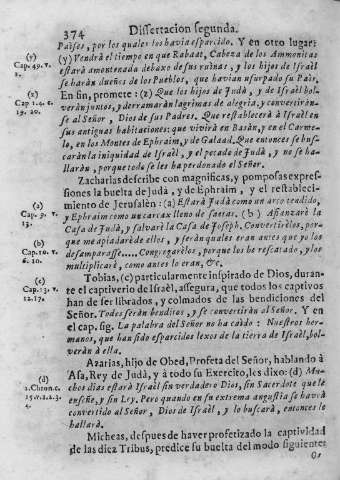 374 Dissertacion segunda.
Paises, por los quales los havia esparcido. Y en otro lugar:
(y) Vendrà el tiempo en que Rabaat, Cabeza de los Ammonitas
estarà amontonada debaxo de sus ruìnas, y los hijos de Israèl
se haràn dueños de los Pueblos, que havian usurpado su Paìs,
En fin, promete: (z) Que los hijos de Judà, y de Israèl bol-
veràn juntos, y derramaràn lagrimas de alegria, y convertiràn-
se al Señor, Dios de sus Padres. Que restablecerà à Israèl en
sus antiguas habitaciones: que vivirà en Basàn, y en el Carme-
lo, en los Montes de Ephraim, y de Galaad, Que entonces se bus-
caràn la iniquidad de Israèl, y el pecado de Judà, y no se ha-
llaràn, porque todo se les ha perdonado el Señor.
Zacharias describe con magnificas, y pomposas expres-
siones la buelta de Judà, y de Ephraim, y el restableci-
miento de Jerusalèn: (a) Estarà Judà como un arco tendido,
y Ephraim como un carcax lleno de saetas. (b) Afianzarè la
Casa de Judà, y salvarè la Casa de Joseph, Convertirèlos, por-
que me apiadarè de ellos, y seràn quales eran antes que yo los
desamparasse..... Congregarèlos, porque los he rescatado, y los
multiplicarè, como antes lo eran, &c,
Tobias, (c) particularmente inspirado de Dios, duran-
te el captiverio de Israèl, assegura, que todos los captivos
han de ser librados, y colmados de las bendiciones del
Señor. Todos seràn benditos, y se convertiràn al Señor. Y en
el cap. sig. La palabra del Señor no ha caìdo: Nuestros her-
manos, que han sido esparcidos lexos de la tierra de Israèl, bol-
veràn à ella.
Azarias, hijo de Obed, Profeta del Señor, hablando à
Asa, Rey de Judà, y à todo su Exercito, les dixo: (d) Mu-
chos dias estarà Israèl sin verdadero Dios, sin Sacerdote que le
enseñe, y sin Ley. Pero quando en su extrema angustia se havrà
convertido al Señor, Dios de Israèl, y lo buscarà, entonces lo
hallarà.
Micheas, despues de haver profetizado la captividad
de las diez Tribus, predice su buelta del modo siguiente:
(y)
Cap. 49. v.
2.
(z)
Cap. 50. v.
19. 20.
(a)
Cap. 9. v.
13.
(b)
Cap. 10. v.
6. 10.
(c)
Cap. 13. v.
12. 17.
(d)
2. Chron. c.
15. v. 2. 3.
4.